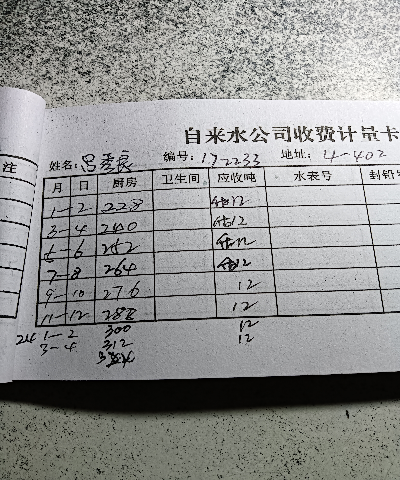 自来水公司收费计量卡
注
姓名:吕秀良 编号:172233 地址:4-402
月 日 厨房 卫生间 应收吨 水表号 封铅号
1-2 228 估12
3-4 240 估12
5-6 252 估12
7-8 264 估12
9-10 276 12
11-12 288 12
24 1-2 300 12
3-4 312 12